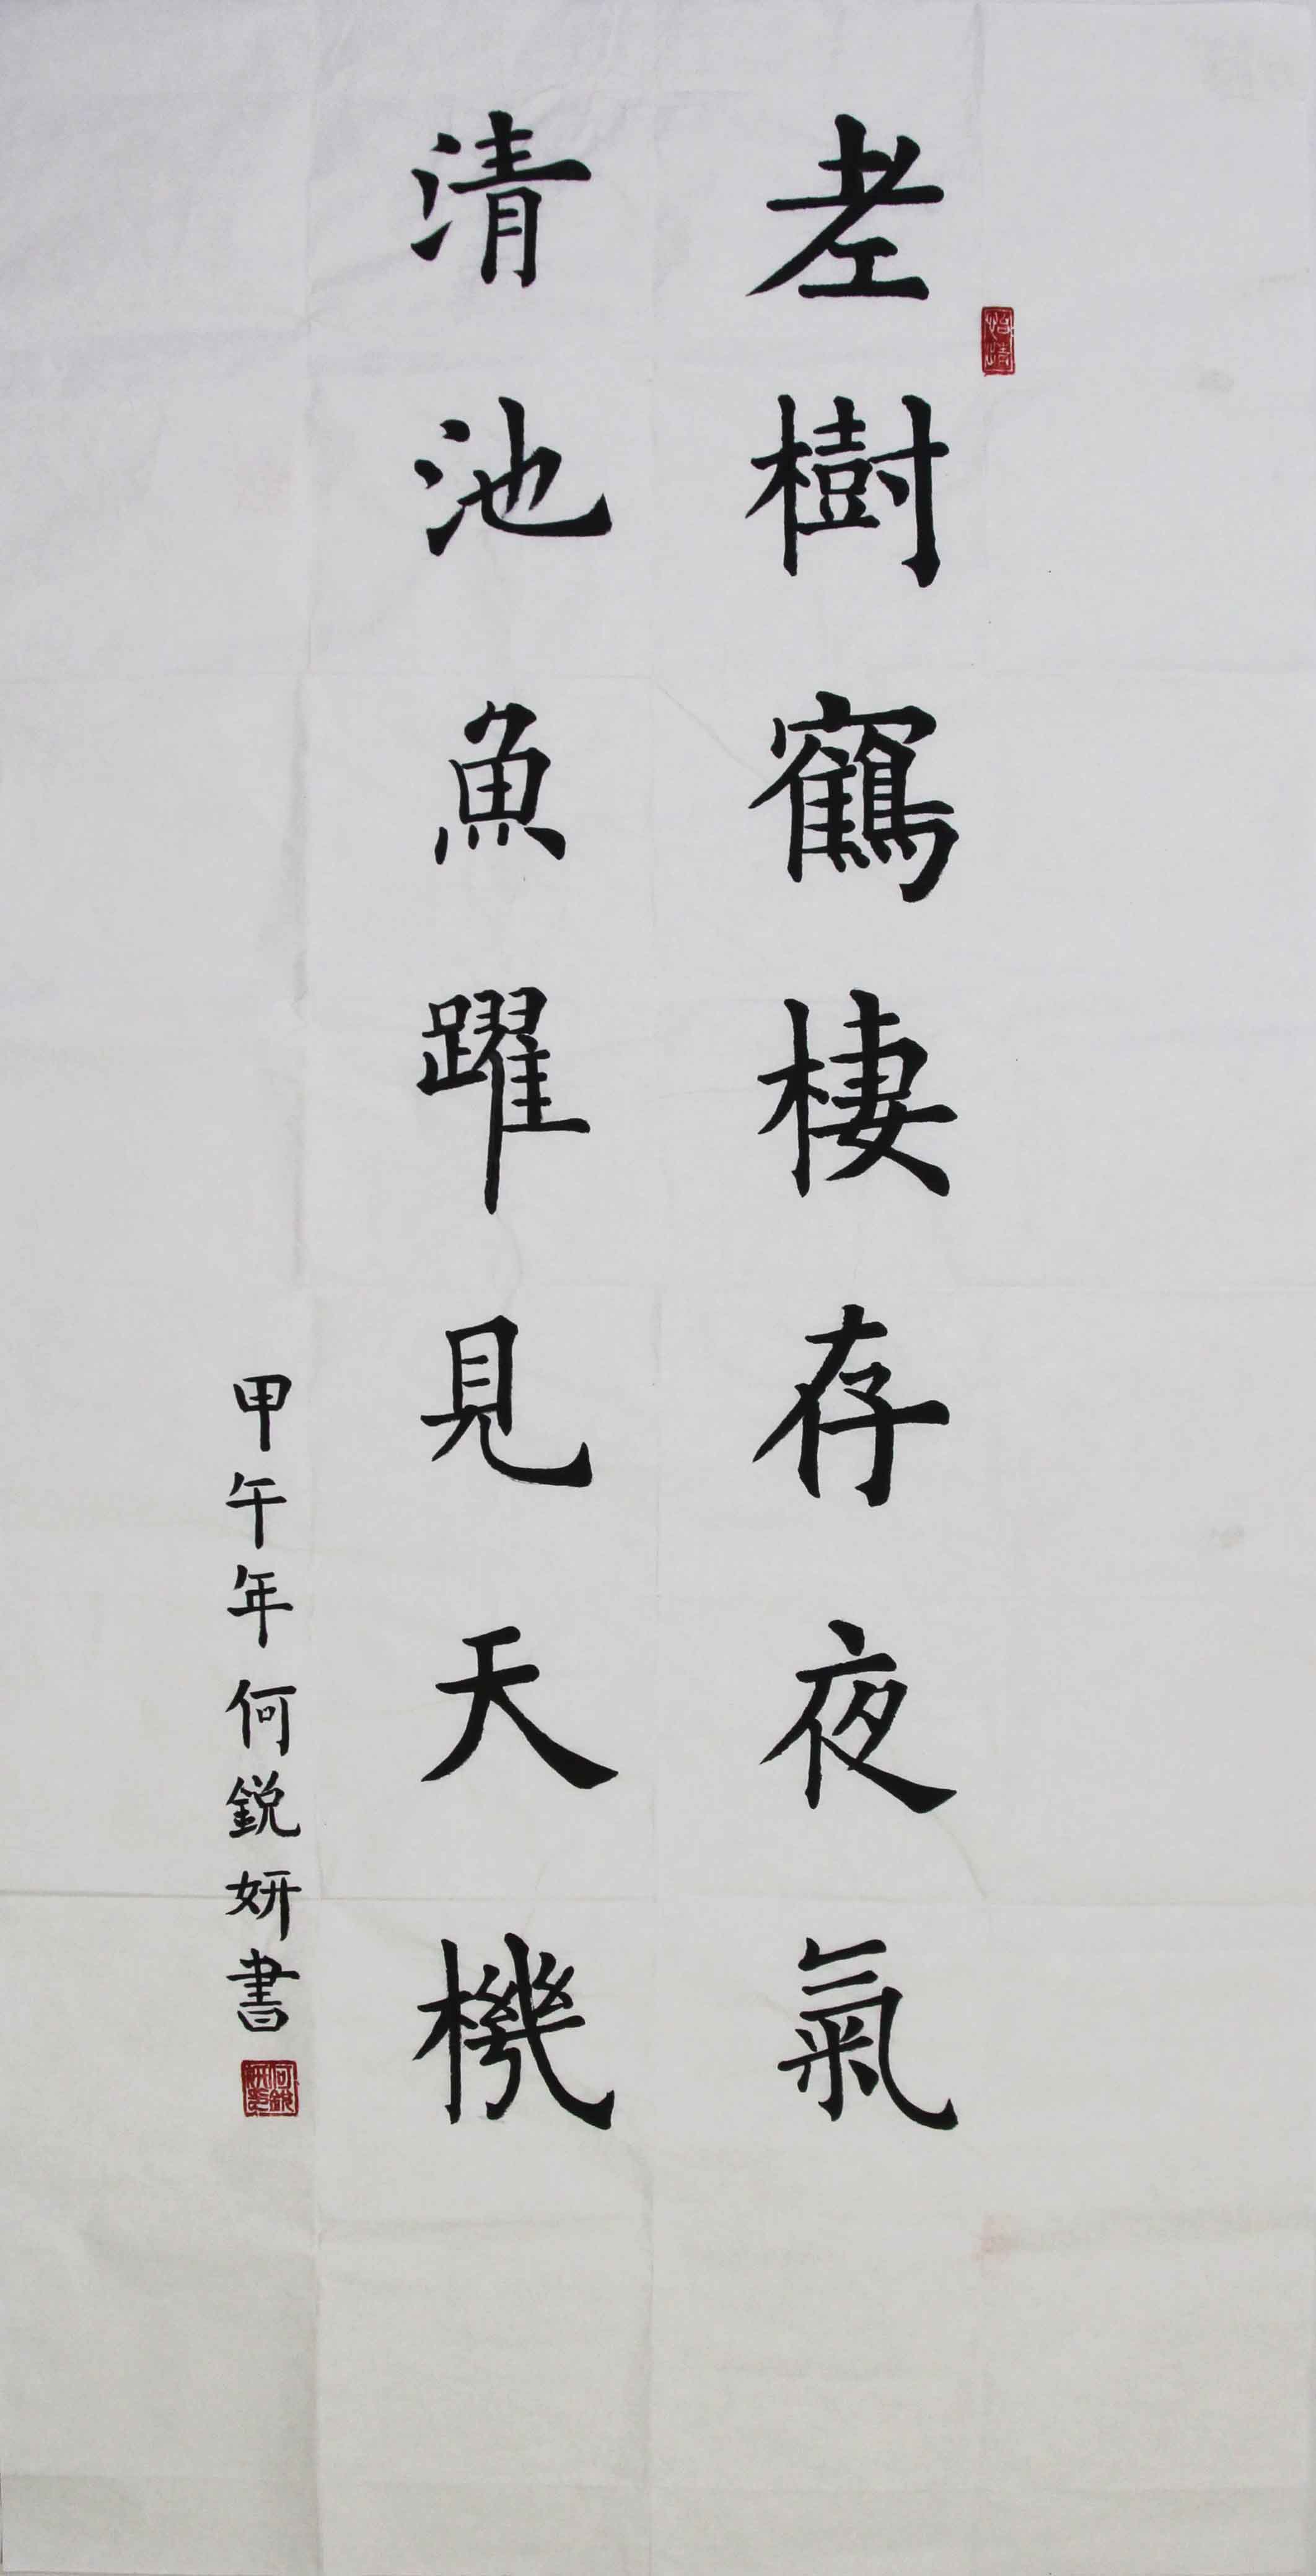 老樹鶴棲存夜氣
清池魚躍見天機
甲午年何銳妍書
怡情
何銳妍印